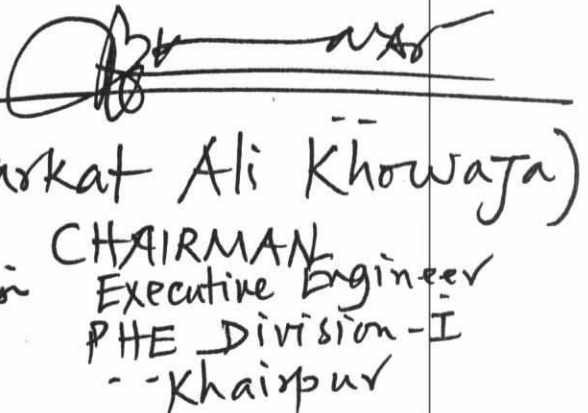 arkat Ali Khowaja)
CHAIRMAN
Executive Engineer
PHE Division-I
Khairpur